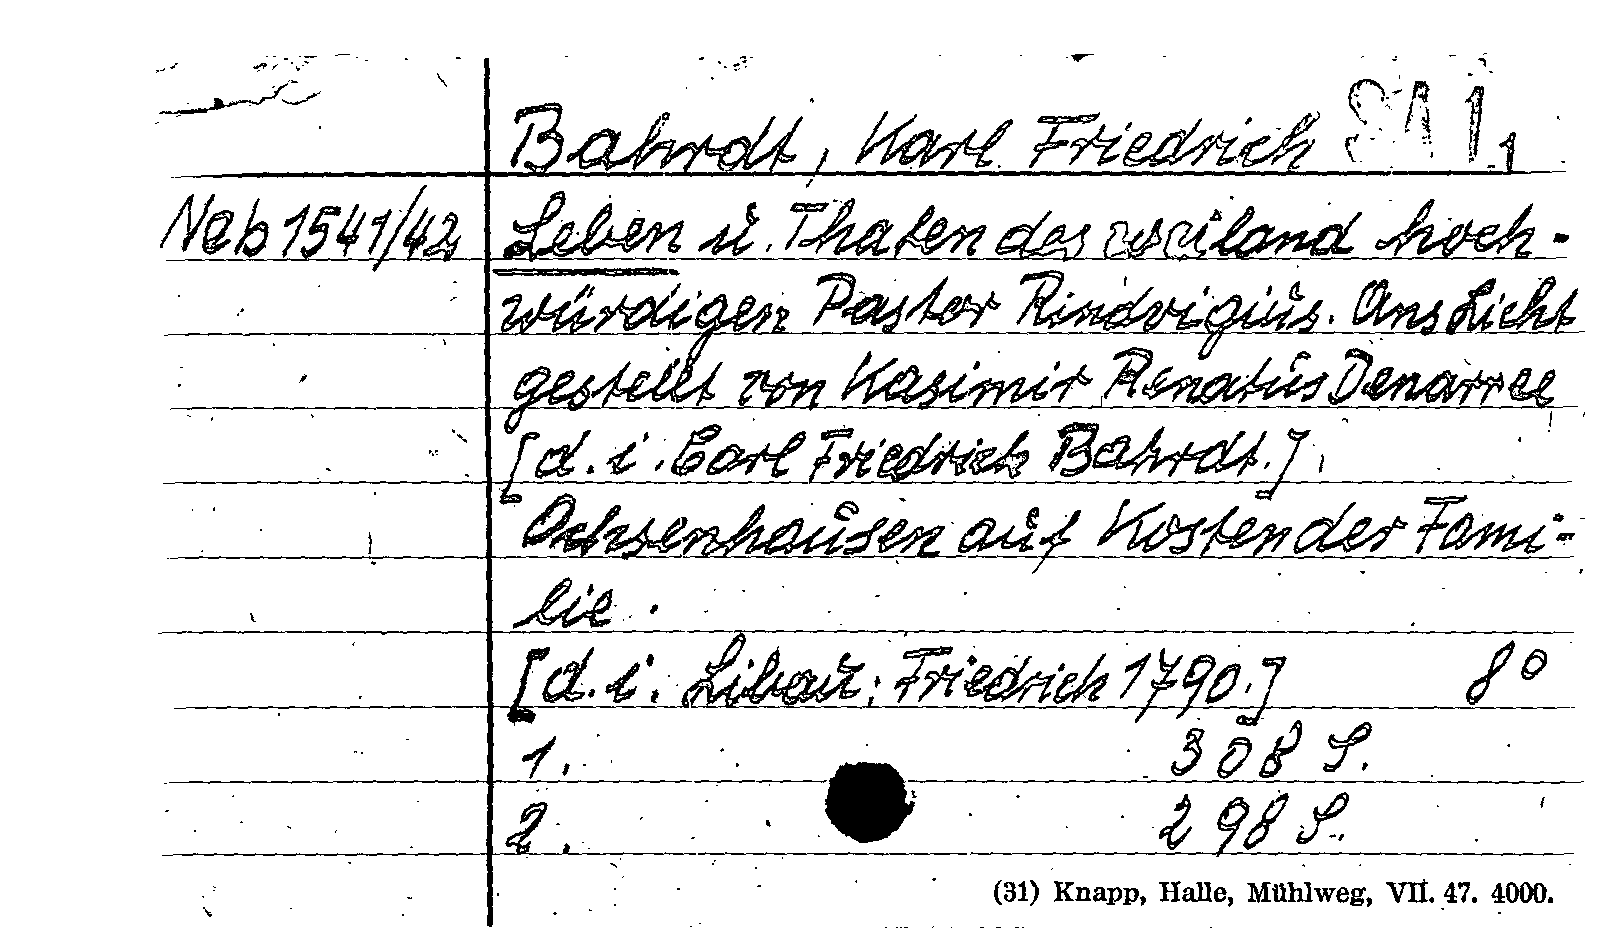 Bahrdt, Karl Friedrich SA 1 1
Neb 1541/42 Leben u. Thaten des weiland hoch-
würdigen Pastor Rindvigius. Ans Licht
gestellt von Kasimir Renatus Denarree
[d. i. Carl Friedrich Bahrdt.]
Ochsenhausen auf Kosten der Fami-
lie.
[d. i. Libau: Friedrich 1790.] 8°
1. 308 S.
2. 298 S.
(31) Knapp, Halle, Mühlweg, VII. 47. 4000.